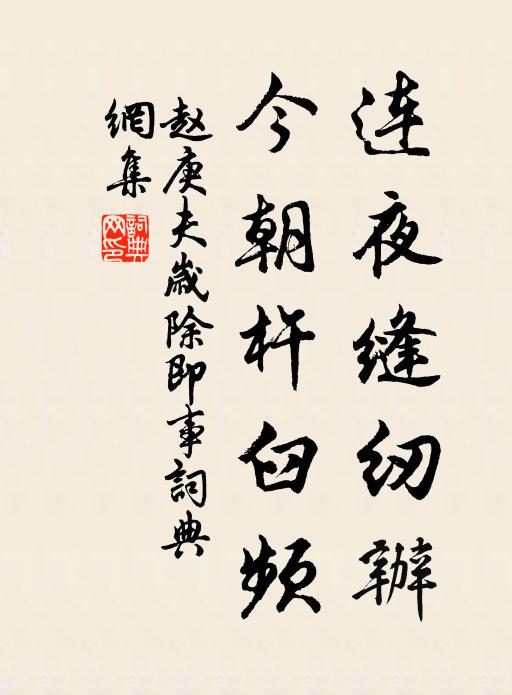 连夜缝纫辦
今朝杵臼頻
赵庚夫歲除即事詞典
網集
詞典
网印